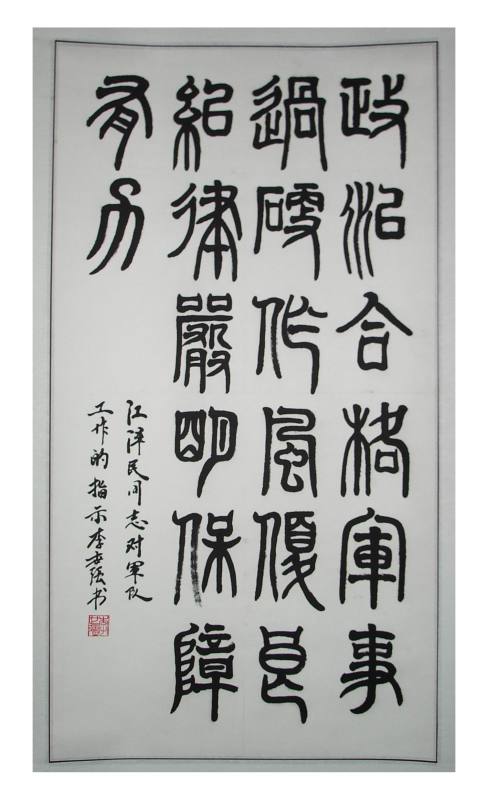 政治合格軍事
過硬作風優良
紀律嚴明保障
有力
江泽民同志对軍队
工作的指示李书